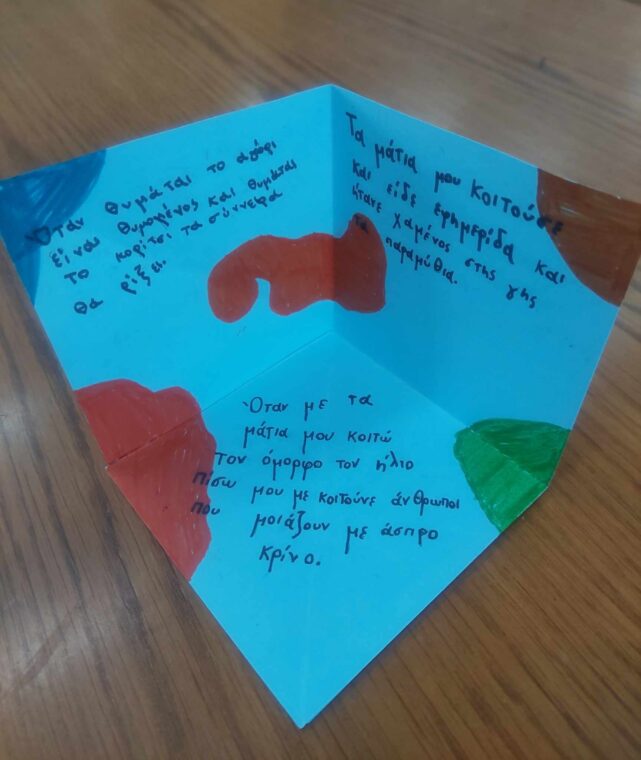 Όταν θυμάται το αγόρι
είναι θυμωμένος και θυμάται
το κορίτσι τα σύννεφα
θα ρίξει.
Τα μάτια μου κοιτούσε
και είδε εφημερίδα και
ήτανε χαμένος στης γης
τα παραμύθια.
Όταν με τα
μάτια μου κοιτώ
τον όμορφο τον ήλιο
πίσω μου με κοιτούνε άνθρωποι
που μοιάζουν με άσπρο
κρίνο.